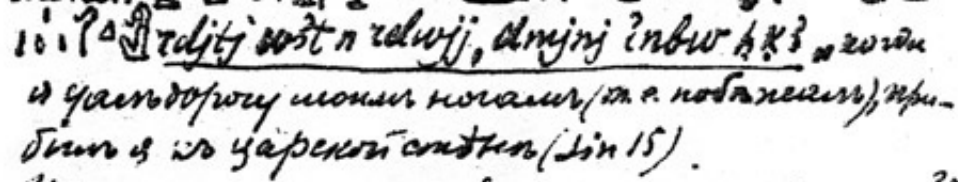 rdjtj wꜣt n rdwjj, dmjnj inbw ḥḳꜣ „когда
я далъ дорогу моимъ ногамъ (т. е. побѣжалъ), при-
былъ я къ царской стѣнѣ (Sin 15).